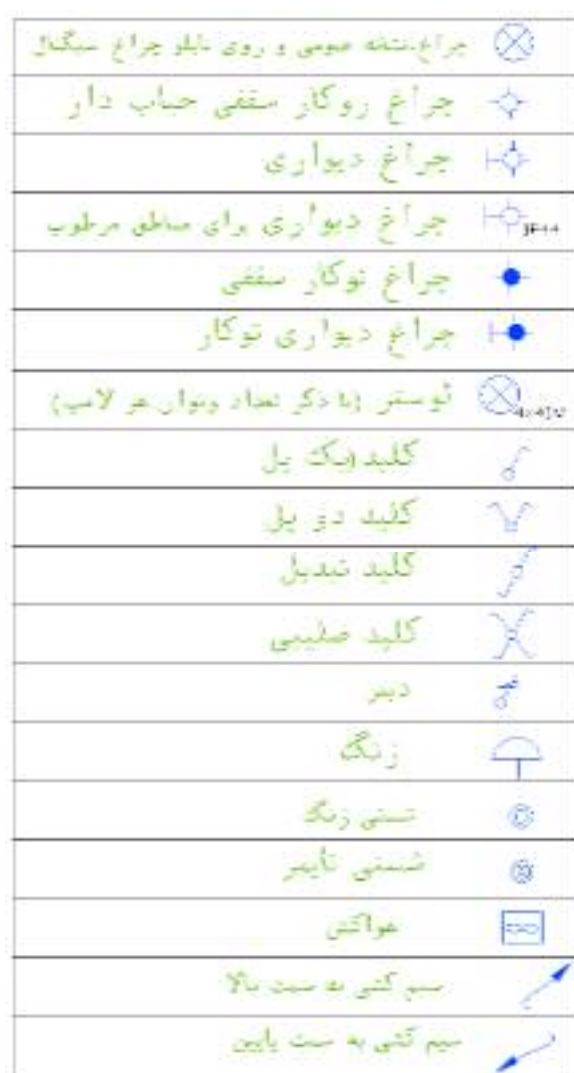 چراغ نقشه عمومی و روی تابلو چراغ سیگنال
چراغ روکار سقفی حباب دار
چراغ دیواری
چراغ دیواری برای مناطق مرطوب
IP44
چراغ توکار سقفی
چراغ دیواری توکار
لوستر (با ذکر تعداد وتوان هر لامپ)
کلید یک پل
کلید دو پل
کلید تبدیل
کلید صلیبی
دیمر
زنگ
شستی زنگ
شستی تایمر
هواکش
سیم کشی به سمت بالا
سیم کشی به سمت پایین